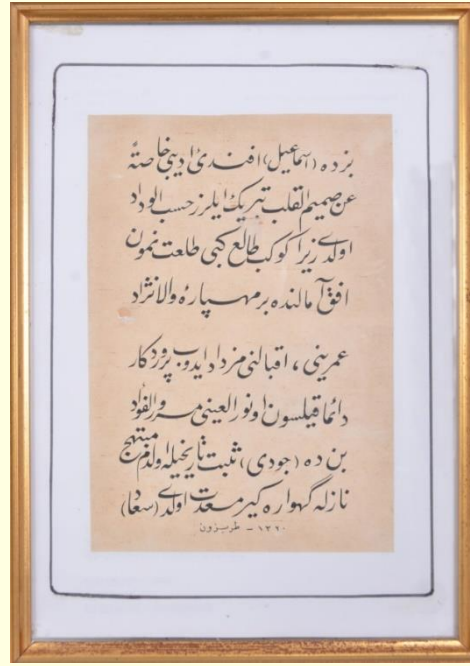 بزده (اسماعیل) افندیٔ ادیبی خاصةً
عن صمیم القلب تبریک ایلرز حسب الوداد
اولدی زیرا کوکب طالع کبی طلعت نمون
افق آمالنده بر مهپارهٔ والانژاد
عمرینی ، اقبالنی مزداد ایدوب پروردکار
دائما قیلسون او نور العینی مسرور الفؤاد
بن ده (جودی) ثبت تاریخیله اولدم مبتهج
نازله کهواره کیر مسعدت اولدی (سعاد)
١٣٢٠ – طربزون